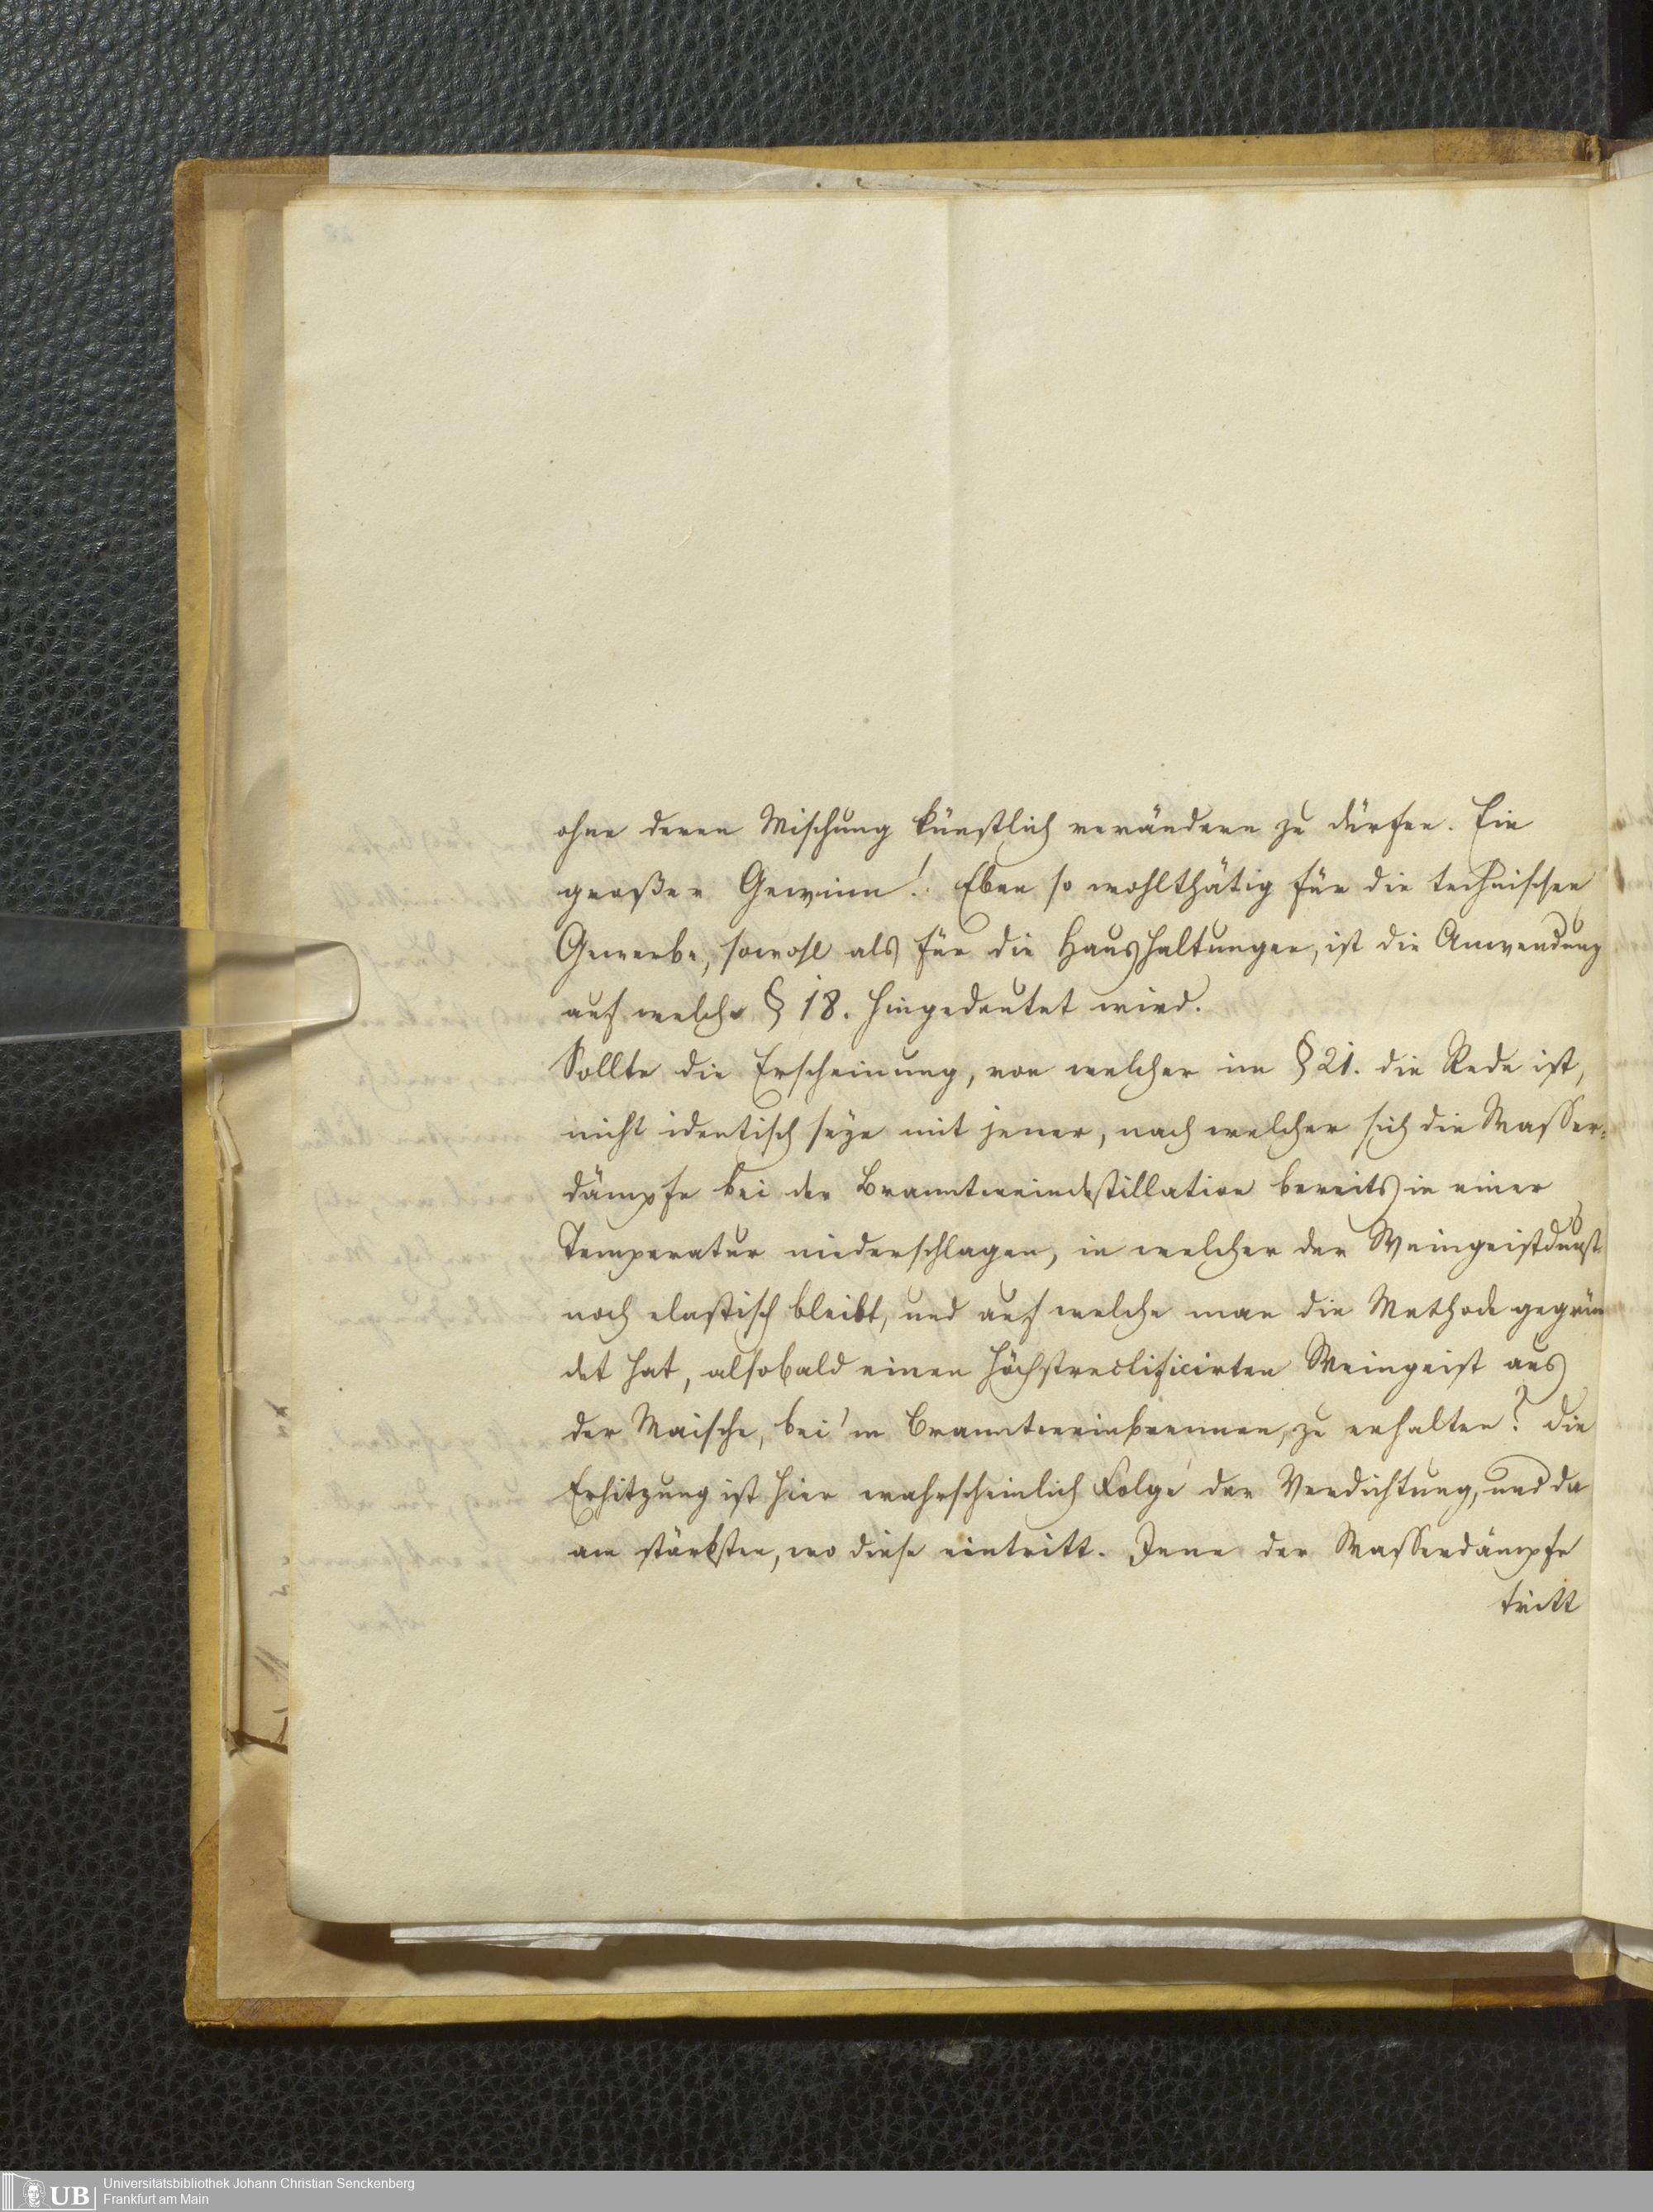 ohne deren Mischung künstlich verändern zu dürfen. Ein
großer Gewinn! Eben so wohlthätig für die technischen
Gewerbe, sowohl als für die Haushaltungen, ist die Anwendung
auf welche § 18. hingedeutet wird.
Sollte die Erscheinung, von welcher im § 21. die Rede ist,
nicht identisch seye mit jener, nach welcher sich die Wasser-
dämpfe bei der Branntweindestillation bereits in einer
Temperatur niederschlagen, in welcher der Weingeistdunst
noch elastisch bleibt, und auf welche man die Methode gegrün
det hat, alsobald einen höchstrectificirten Weingeist aus
der Maische, bei'm Branntweinbrennen, zu erhalten? Die
Erhitzung ist hier wahrscheinlich Folge der Verdichtung, und da
am stärksten, wo diese eintritt. Jene der Wasserdämpfe
tritt
UB
Universitätsbibliothek Johann Christian Senckenberg
Frankfurt am Main